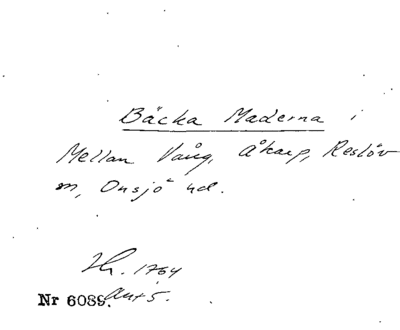 Bäcka Maderna i
Mellan Vång, Åkarp, Reslöv
m, Onsjö hd.
Th. 1764
Nr 6089. Akt 5.